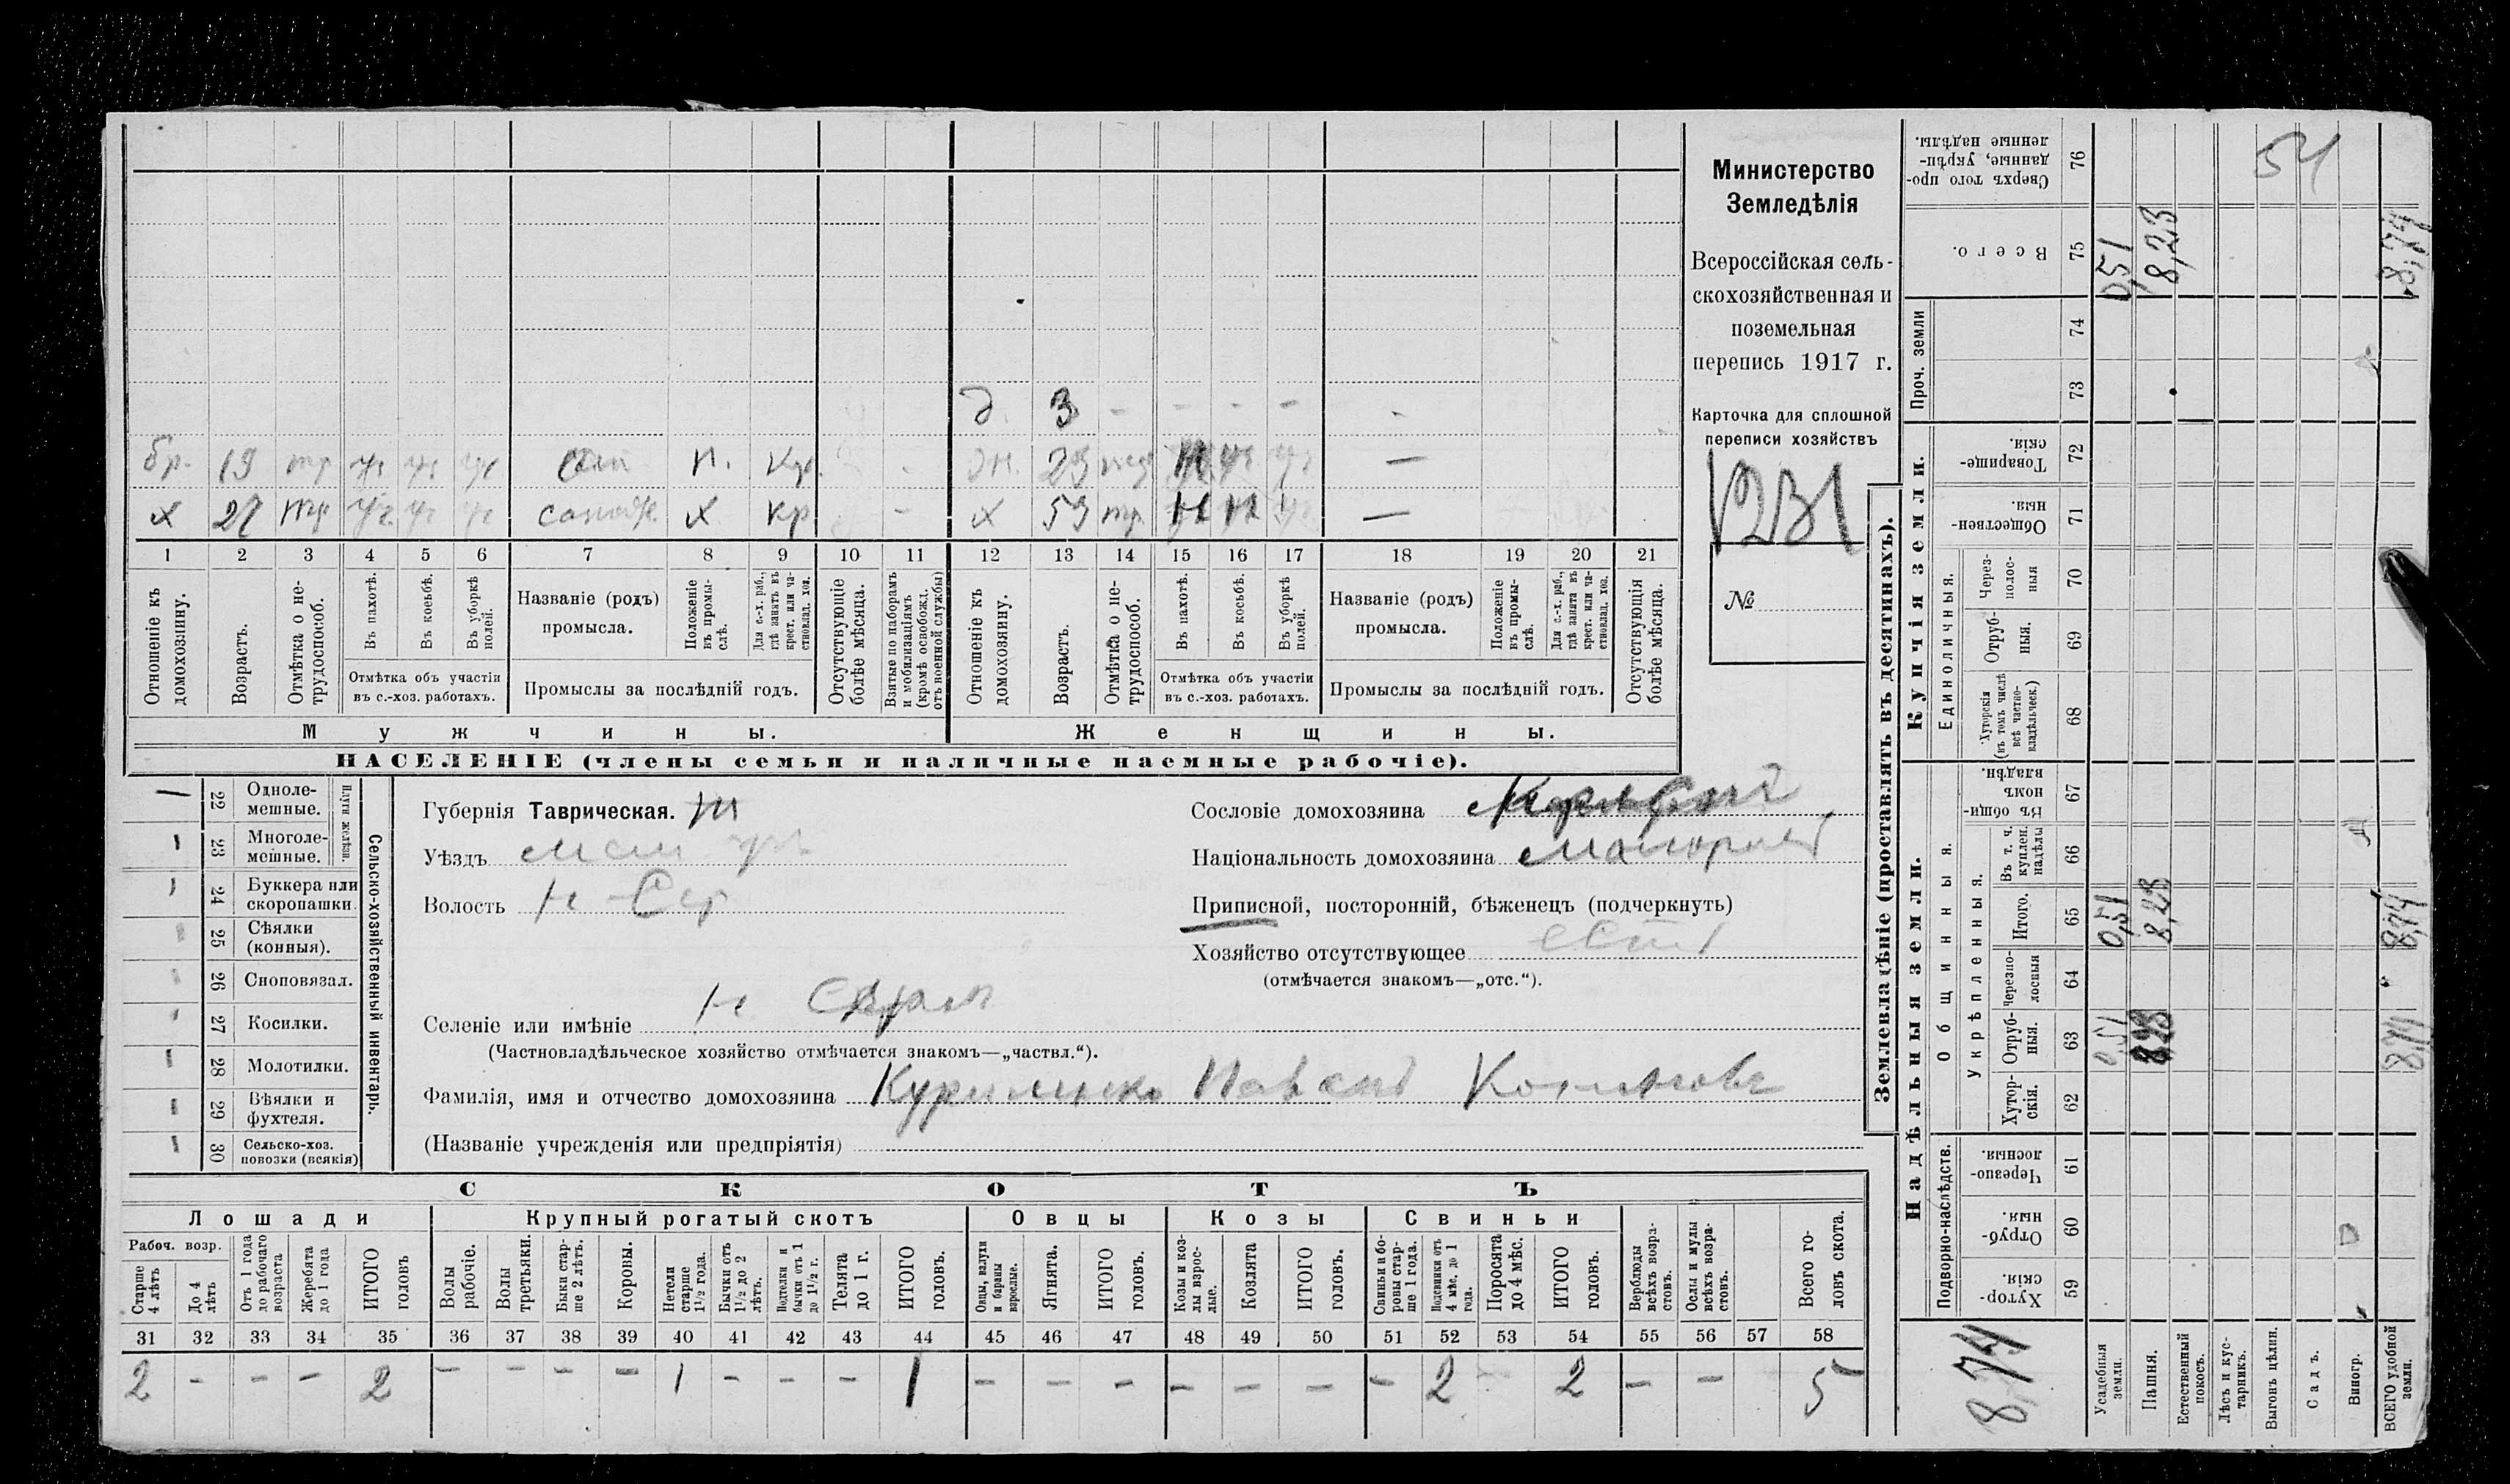 Министерство
Земледѣлія
Всероссійская сель-
скохозяйственная и
поземельная
перепись 1917 г.
Карточка для сплошной
переписи хозяйствъ
№
д. 3 - - - - -
бр. 19 тр уч уч уч п. кр. 23 —
х 27 тр. уч. уч уч х кр - х 53 тр. н н уч —
1 2 3 4 5 6 7 8 9 10 11 12 13 14 15 16 17 18 19 20 21
Отношеніе къ домохозяину.
Возрастъ.
Отмѣтка о не-трудоспособ.
Въ пахотѣ.
Въ косьбѣ.
Въ уборкѣ полей.
Отмѣтка объ участіи
въ с.-хоз. работахъ.
Названіе (родъ)
промысла.
Положеніе въ промы-слѣ.
Для с.-х. раб., гдѣ занятъ въ крест. или ча-стновлад. хоз.
Промыслы за послѣдній годъ.
Отсутствующіе болѣе мѣсяца.
Взятые по наборамъ и мобилизаціямъ (кромѣ освобожд. отъ военной службы)
Отношеніе къ домохозяину.
Возрастъ.
Отмѣтка о не-трудоспособ.
Въ пахотѣ.
Въ косьбѣ.
Въ уборкѣ полей.
Отмѣтка объ участіи
въ с.-хоз. работахъ.
Названіе (родъ)
промысла.
Положеніе въ промы-слѣ.
Для с.-х. раб., гдѣ занята въ крест. или ча-стновлад. хоз.
Промыслы за послѣдній годъ.
Отсутствующія болѣе мѣсяца.
Мужчины. Женщины.
НАСЕЛЕНІЕ (члены семьи и наличные наемные рабочіе).
Сельско-хозяйственный инвентарь.
Плуги желѣзн.
22 Одноле-мешные.
23 Многоле-мешные.
24 Буккера или скоропашки
25 Сѣялки (конныя).
26 Сноповязал.
27 Косилки.
28 Молотилки.
29 Вѣялки и фухтеля.
30 Сельско-хоз. повозки (всякія)
Губернія Таврическая.
Уѣздъ
Волость
Селеніе или имѣніе
(Частновладѣльческое хозяйство отмѣчается знакомъ—„частвл.“).
Сословіе домохозяина
Національность домохозяина
Приписной, посторонній, бѣженецъ (подчеркнуть)
Хозяйство отсутствующее
(отмѣчается знакомъ—„отс.“).
Фамилія, имя и отчество домохозяина
(Названіе учрежденія или предпріятія)
СКОТЪ
Лошади Крупный рогатый скотъ Овцы Козы Свиньи
Рабоч. возр.
Старше 4 лѣтъ
До 4 лѣтъ
Отъ 1 года до рабочаго возраста
Жеребята до 1 года
ИТОГО головъ
Волы рабочіе.
Волы третьяки.
Быки стар-ше 2 лѣтъ.
Коровы.
Нетели старше 1½ года.
Бычки отъ 1½ до 2 лѣтъ.
Подтелки и бычки отъ 1 до 1½ г.
Телята до 1 г.
ИТОГО головъ.
Овцы, валухи и бараны взрослые.
Ягнята.
ИТОГО головъ.
Козы и коз-лы взрос-лые.
Козлята
ИТОГО головъ.
Свиньи и бо-ровы стар-ше 1 года.
Подсвинки отъ 4 мѣс. до 1 года.
Поросята до 4 мѣс.
ИТОГО головъ.
Верблюды всѣхъ возра-стовъ.
Ослы и мулы всѣхъ возра-стовъ.
Всего го-ловъ скота.
31 32 33 34 35 36 37 38 39 40 41 42 43 44 45 46 47 48 49 50 51 52 53 54 55 56 57 58
2 - - - 2 - - - - 1 - - - 1 - - - - - - - 2 2 - - 5
Землевладѣніе (проставлять въ десятинахъ).
Надѣльныя земли.
Купчія земли.
Подворно-наслѣдств.
Общинныя.
Укрѣпленныя.
Единоличныя.
Проч. земли
Хутор-скія. 59
Отруб-ныя. 60
Черезпо-лосныя. 61
Хутор-скія. 62
Отруб-ныя. 63
Черезпо-лосныя 64
Итого. 65
Въ т. ч. куплен. надѣлы 66
Въ общин-номъ владѣн. 67
Хуторскія (въ томъ числѣ всѣ частно-владѣльческ.) 68
Отруб-ныя. 69
Через-полос-ныя 70
Обществен-ныя. 71
Товарище-скія. 72
73
74
Всего. 75
Сверхъ того про-данные, укрѣп-ленные надѣлы. 76
Усадебныя земли. 0,51 0,51 0,51
Пашня. 8,23 8,23 8,23
Естественный покосъ.
Лѣсъ и кус-тарникъ.
Выгонъ цѣлин.
Садъ.
Виногр.
ВСЕГО удобной земли. 8,74 8,74 8,74
8,74
54